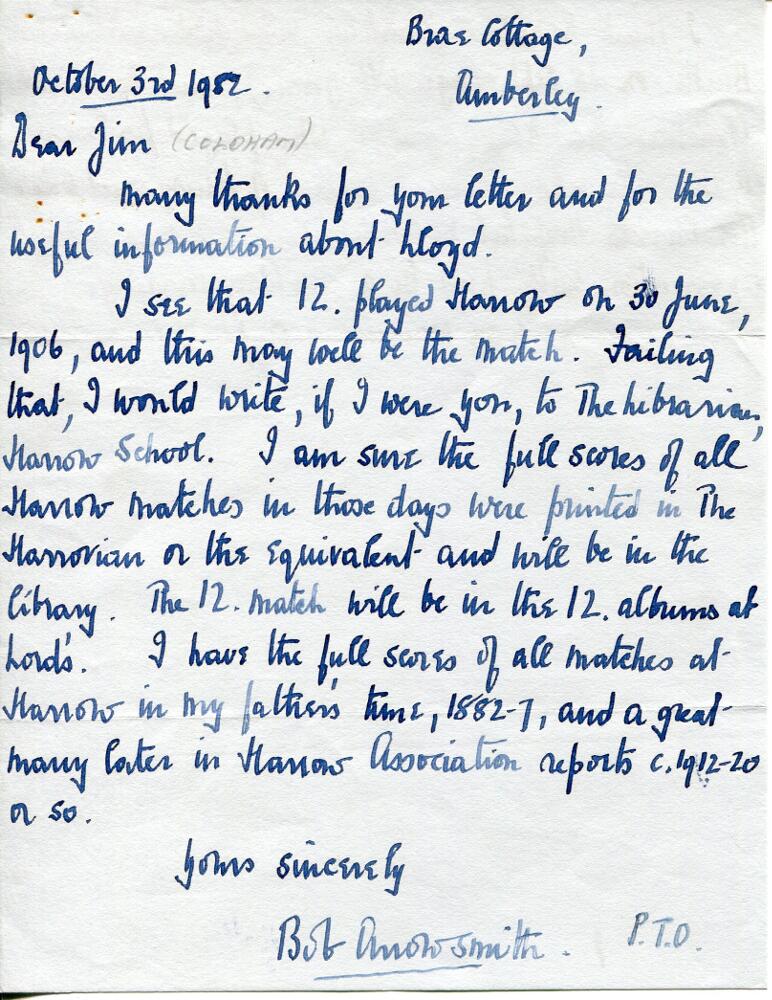 Brae Cottage,
October 3rd 1982.
Amberley.
Dear Jim (COLDHAM)
Many thanks for your letter and for the
useful information about Lloyd.
I see that I Z. played Harrow on 30 June,
1906, and this may well be the match. Failing
that, I would write, if I were you, to The Librarian,
Harrow School. I am sure the full scores of all
Harrow matches in those days were printed in The
Harrovian or the equivalent and will be in the
library. The I Z. match will be in the I Z. albums at
Lord's. I have the full scores of all matches at
Harrow in my father's time, 1882-7, and a great
many later in Harrow Association reports c.1912-20
or so.
Yours sincerely
Bob Arrowsmith.
P.T.O.